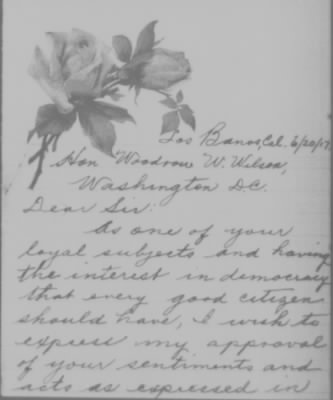 Los Banos, Cal. 6/20/17.
Hon Woodrow W. Wilson,
Washington D.C.
Dear Sir:
As one of your
loyal subjects and having
the interest in democracy
that every good citizen
should have, I wish to
express my approval
of your sentiments and
acts as expressed in